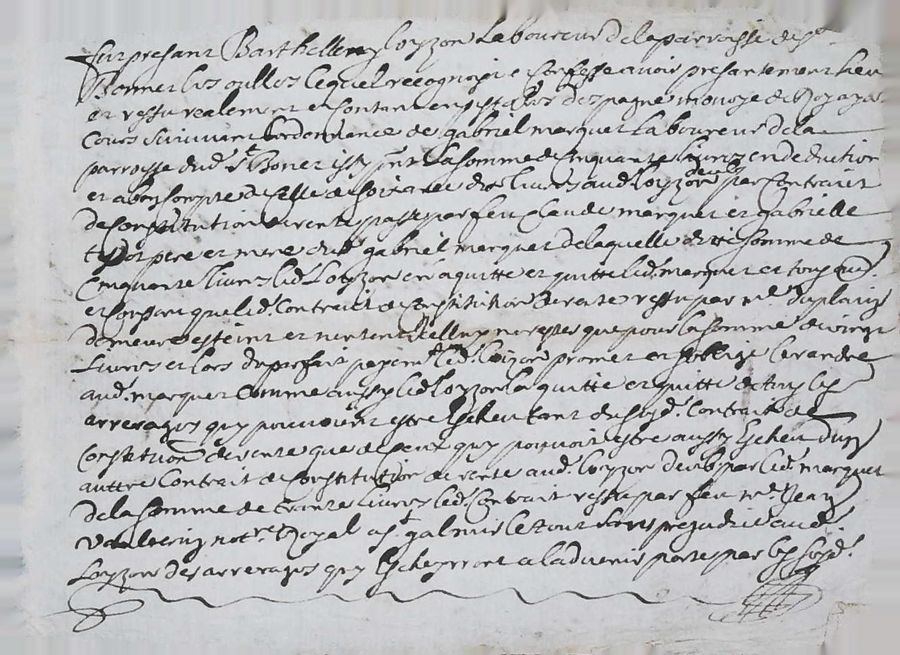 fut presant Barthellemy loyzon Laboureur de la parroisse de St
Bonnet les oulles lequel recognoist & confesse avoir presantement heu
et receu realement et contant en pistolles despagne monoye du Roy ayant
cours suivant lordonnance de gabriel marquet Laboureur de la
parroisse dud. St Bonet issy pnt La somme de cinquante livres en deduction
et a bon compte de celle de soixante dix livres aud. loyzon deube par contrait
de constitution de rente passe par feu Claude marquet et gabrielle
pere et mere dud. gabriel marquet de laquelle ditte somme de
cinquante livres led. Loyzon en a quitte et quitte led. marquet et tous aud.
et consent que led. contrait de constitution de rente receu par me duplain
demeure esteint et ne reste que pour la somme de vingt
Livres et lors du parfait payemt led. loyzon promet et soblige le randre
aud. marquet comme aussy led. loyzon la quitte et quitte de tous les
arrerages quy pouvoient estre escheu tant du susd. contrait de
constitution de rente que de ceux quy pouvoit estre aussy escheu dun
auttre contrait de constitution de rente aud. loyzon deub par led. marquet
de la somme de trante livres led. contrait receu par feu me Jean
notre Royal a St galmier le tout sans prejudice aud.
Loyzon des arrerages quy escherront a ladvenir porte par les susd.